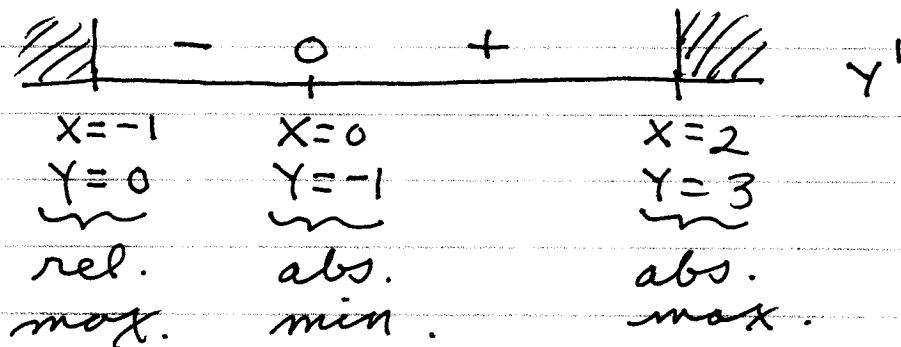 - 0 + Y'
X=-1 X=0 X=2
Y=0 Y=-1 Y=3
rel. abs. abs.
max. min. max.